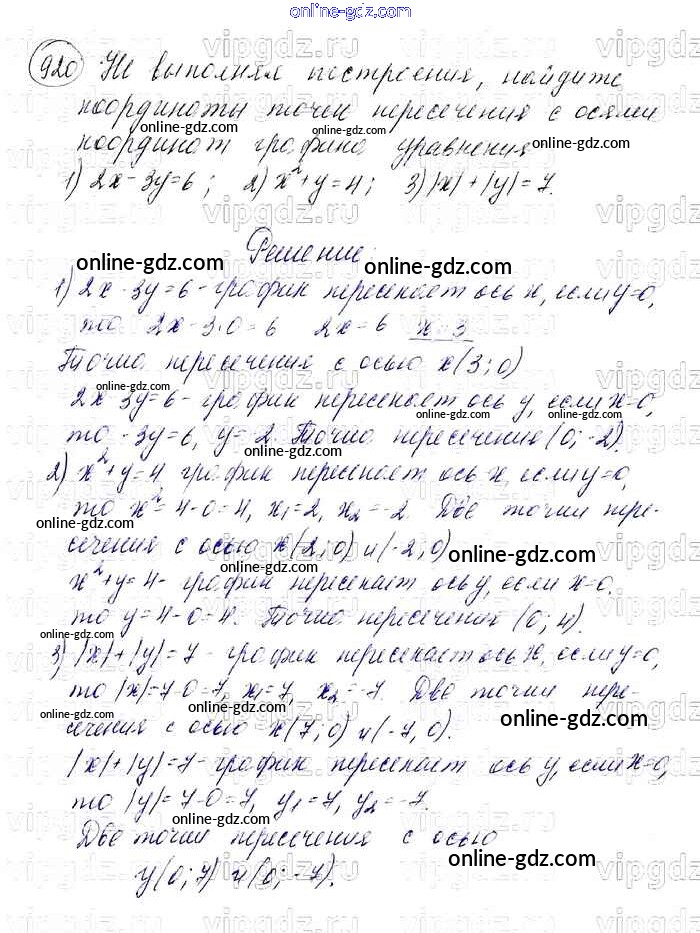 online-gdz.com
920 Не выполняя построения, найдите
координаты точек пересечения с осями
координат графика уравнения
1) 2x - 3y = 6; 2) x² + y = 4; 3) |x| + |y| = 7.
Решение:
1) 2x - 3y = 6 - график пересекает ось x, если y = 0,
то 2x - 3·0 = 6 2x = 6 x = 3
Точка пересечения с осью x (3; 0)
2x - 3y = 6 - график пересекает ось y, если x = 0,
то -3y = 6, y = -2. Точка пересечения (0; -2).
2) x² + y = 4 график пересекает ось x, если y = 0,
то x² = 4 - 0 = 4, x₁ = 2, x₂ = -2. Две точки пере-
сечения с осью x (2; 0) и (-2; 0)
x² + y = 4 - график пересекает ось y, если x = 0.
то y = 4 - 0 = 4. Точка пересечения (0; 4).
3) |x| + |y| = 7 - график пересекает ось x, если y = 0,
то |x| = 7 - 0 = 7, x₁ = 7, x₂ = -7. Две точки пере-
сечения с осью x (7; 0) и (-7, 0).
|x| + |y| = 7 - график пересекает ось y, если x = 0,
то |y| = 7 - 0 = 7, y₁ = 7, y₂ = -7.
Две точки пересечения с осью
y (0; 7) и (0; -7).